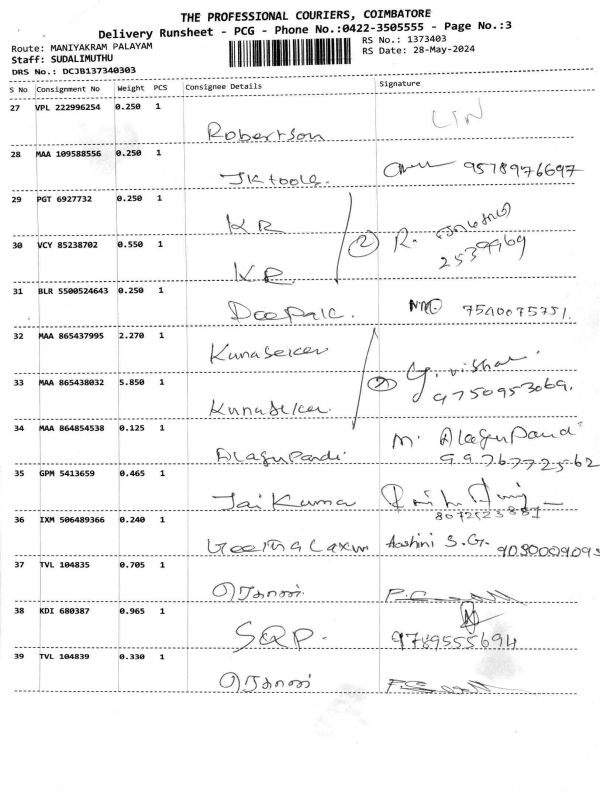 THE PROFESSIONAL COURIERS, COIMBATORE
Delivery Runsheet - PCG - Phone No.:0422-3505555 - Page No.:3
Route: MANIYAKRAM PALAYAM
RS No.: 1373403
Staff: SUDALIMUTHU
RS Date: 28-May-2024
DRS No.: DCJB137340303
S No Consignment No Weight PCS Consignee Details Signature
27 VPL 222996254 0.250 1
Robertson
28 MAA 109588556 0.250 1
JK tools. 9578976697
29 PGT 6927732 0.250 1
KR
② R.
2539969
30 VCY 85238702 0.550 1
KR
31 BLR 5500524643 0.250 1
Deepak. 7540075751.
32 MAA 865437995 2.270 1
Kunasekar
② G. Vishal
9750953069.
33 MAA 865438032 5.850 1
Kunasekar
34 MAA 864854538 0.125 1
Alagupandi M. Alagupandi
9976772562
35 GPM 5413659 0.465 1
Jai Kuma
8072523881
36 IXM 506489366 0.240 1
Geetha Laxm Aashini S.G.
37 TVL 104835 0.705 1
38 KDI 680387 0.965 1
SQP. 9789555694
39 TVL 104839 0.330 1